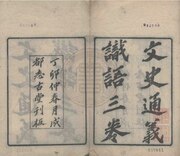 文史通義
識語三卷
丁卯仲春月成
都志古堂刊板